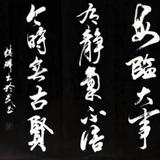 每臨大事
有靜氣不信
今時無古賢